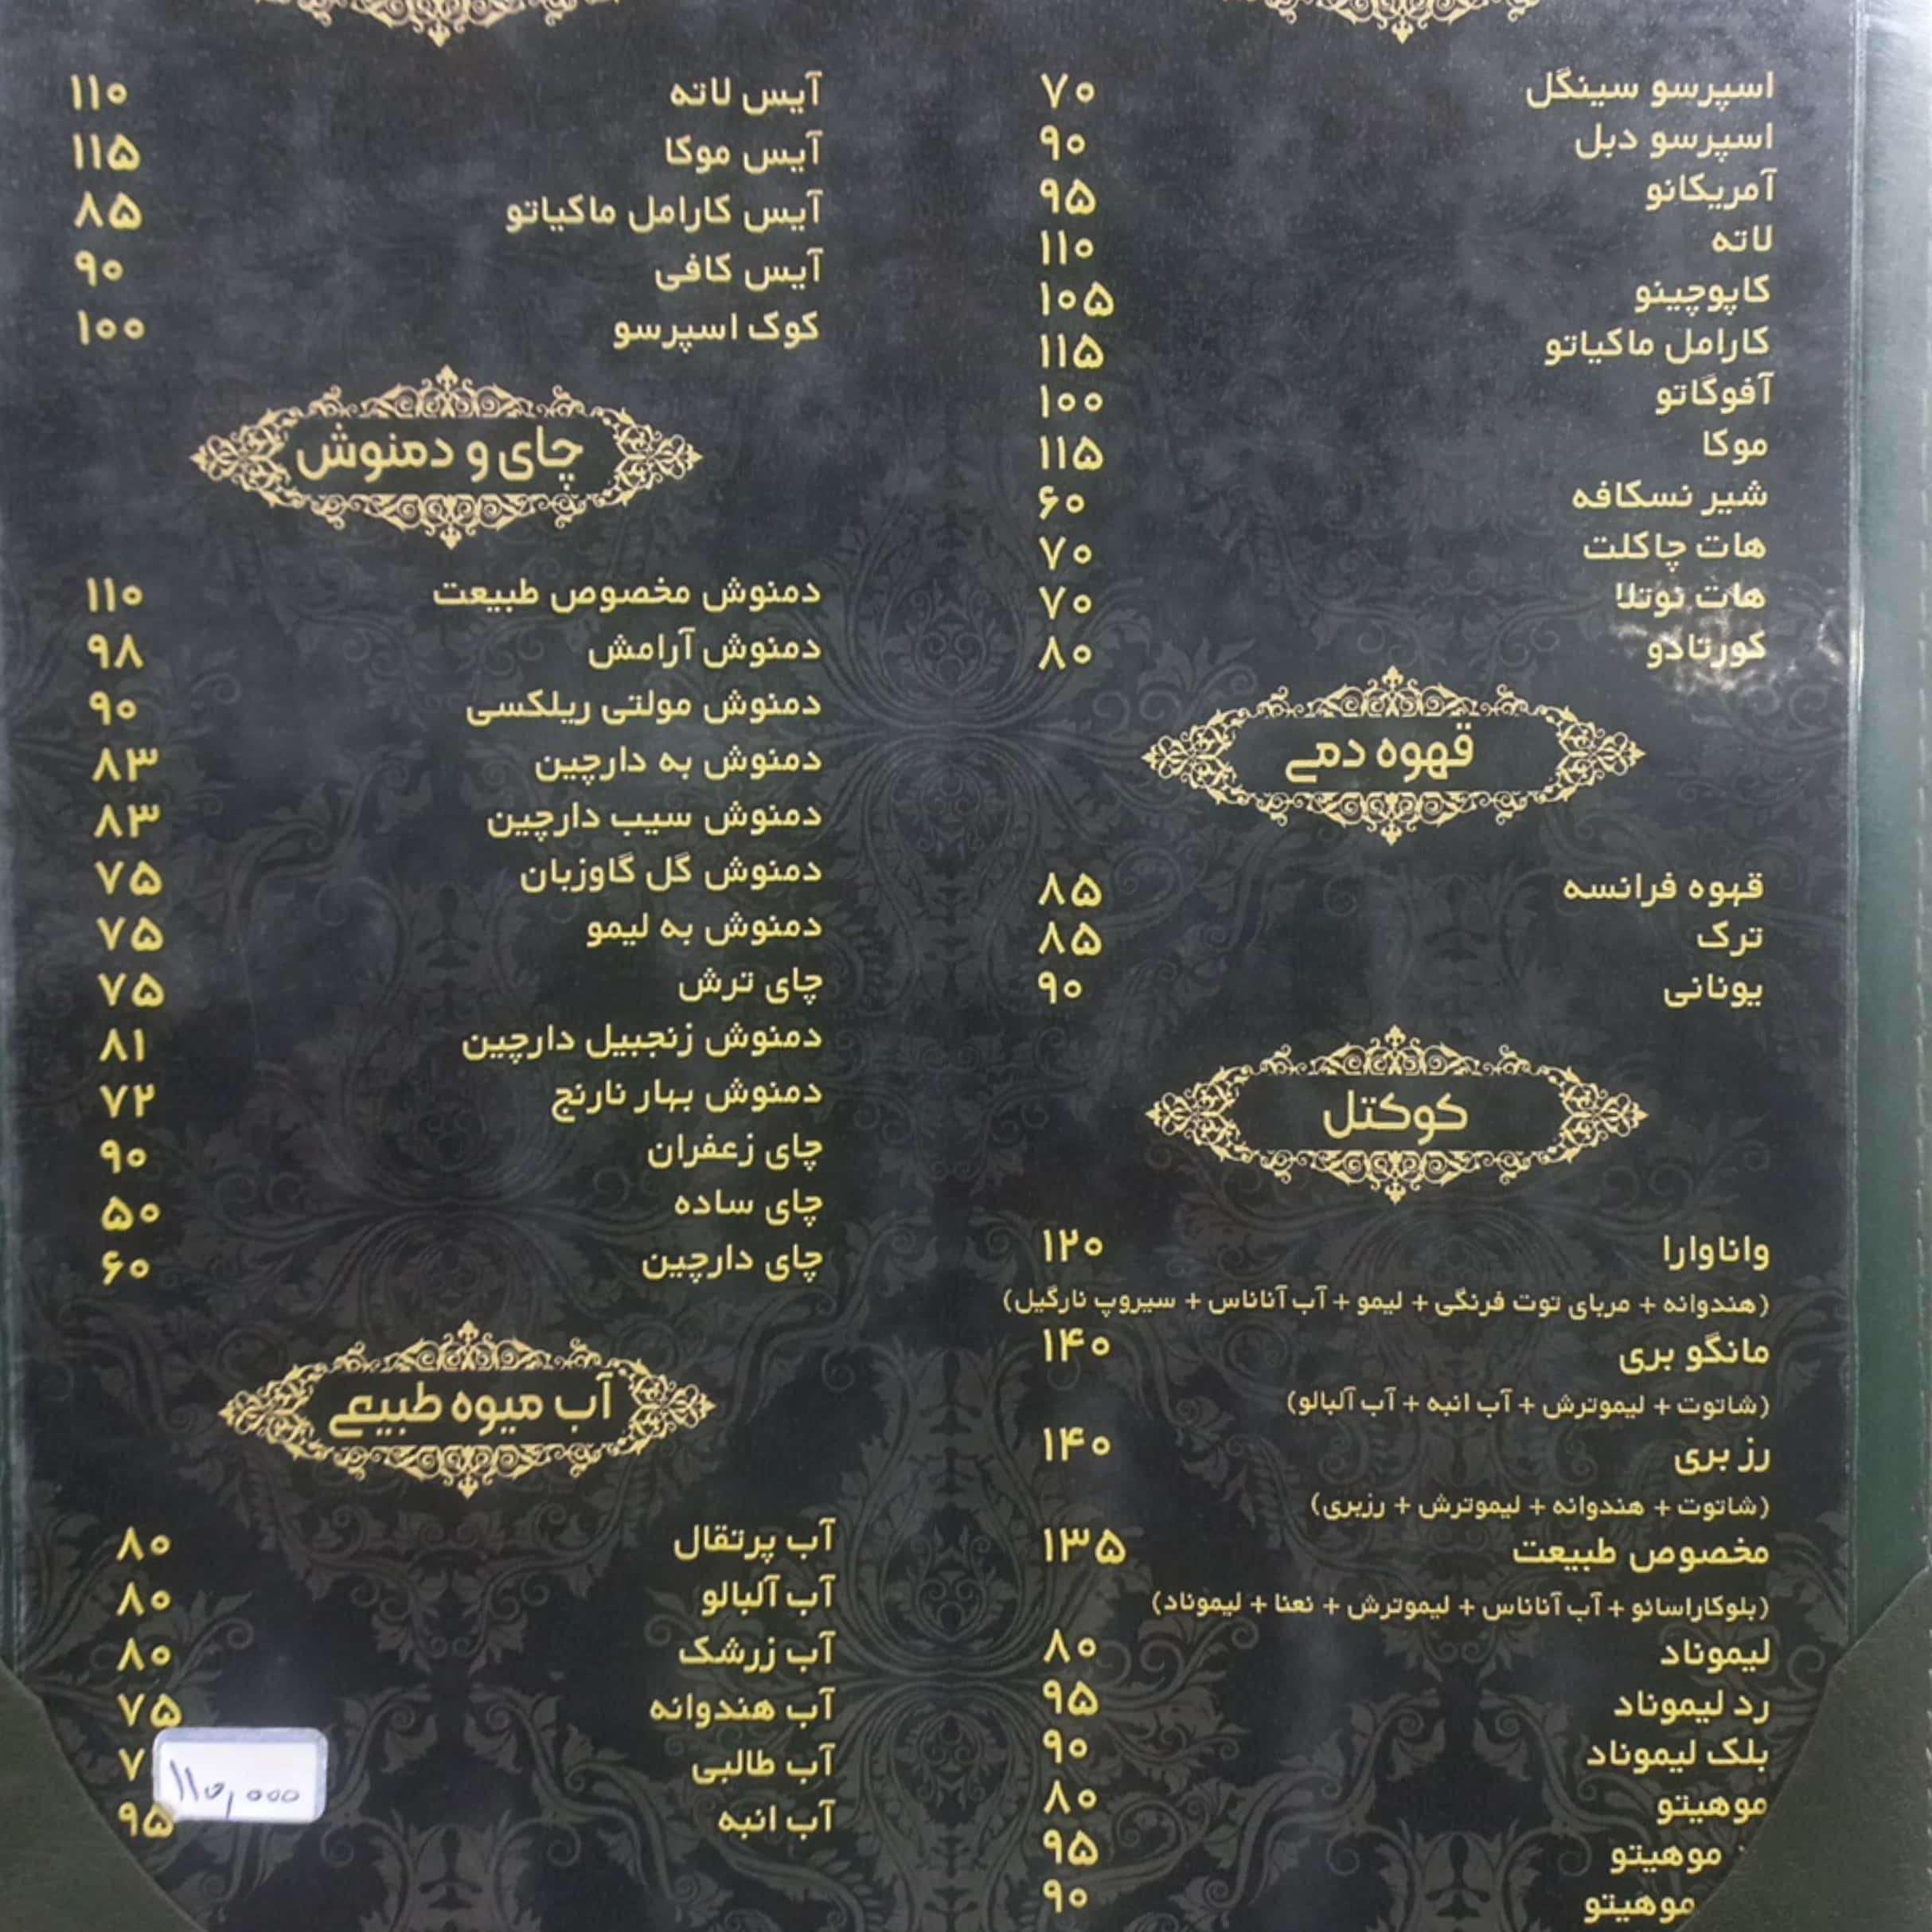 اسپرسو سینگل ۷۰
اسپرسو دبل ۹۰
آمریکانو ۹۵
لاته ۱۱۰
کاپوچینو ۱۰۵
کارامل ماکیاتو ۱۱۵
آفوگاتو ۱۰۰
موکا ۱۱۵
شیر نسکافه ۶۰
هات چاکلت ۷۰
هات نوتلا ۷۰
کورتادو ۸۰
قهوه دمی
قهوه فرانسه ۸۵
ترک ۸۵
یونانی ۹۰
کوکتل
واناوارا ۱۲۰
(هندوانه + مربای توت فرنگی + لیمو + آب آناناس + سیروپ نارگیل)
مانگو بری ۱۴۰
(شاتوت + لیموترش + آب انبه + آب آلبالو)
رز بری ۱۴۰
(شاتوت + هندوانه + لیموترش + رزبری)
مخصوص طبیعت ۱۳۵
(بلوکاراسائو + آب آناناس + لیموترش + نعنا + لیموناد)
لیموناد ۸۰
رد لیموناد ۹۵
بلک لیموناد ۹۰
موهیتو ۸۰
موهیتو ۹۵
موهیتو ۹۰
آیس لاته ۱۱۰
آیس موکا ۱۱۵
آیس کارامل ماکیاتو ۸۵
آیس کافی ۹۰
کوک اسپرسو ۱۰۰
چای و دمنوش
دمنوش مخصوص طبیعت ۱۱۰
دمنوش آرامش ۹۸
دمنوش مولتی ریلکسی ۹۰
دمنوش به دارچین ۸۳
دمنوش سیب دارچین ۸۳
دمنوش گل گاوزبان ۷۵
دمنوش به لیمو ۷۵
چای ترش ۷۵
دمنوش زنجبیل دارچین ۸۱
دمنوش بهار نارنج ۷۲
چای زعفران ۹۰
چای ساده ۵۰
چای دارچین ۶۰
آب میوه طبیعی
آب پرتقال ۸۰
آب آلبالو ۸۰
آب زرشک ۸۰
آب هندوانه ۷۵
آب طالبی ۷
۱۱۰,۰۰۰
آب انبه ۹۵